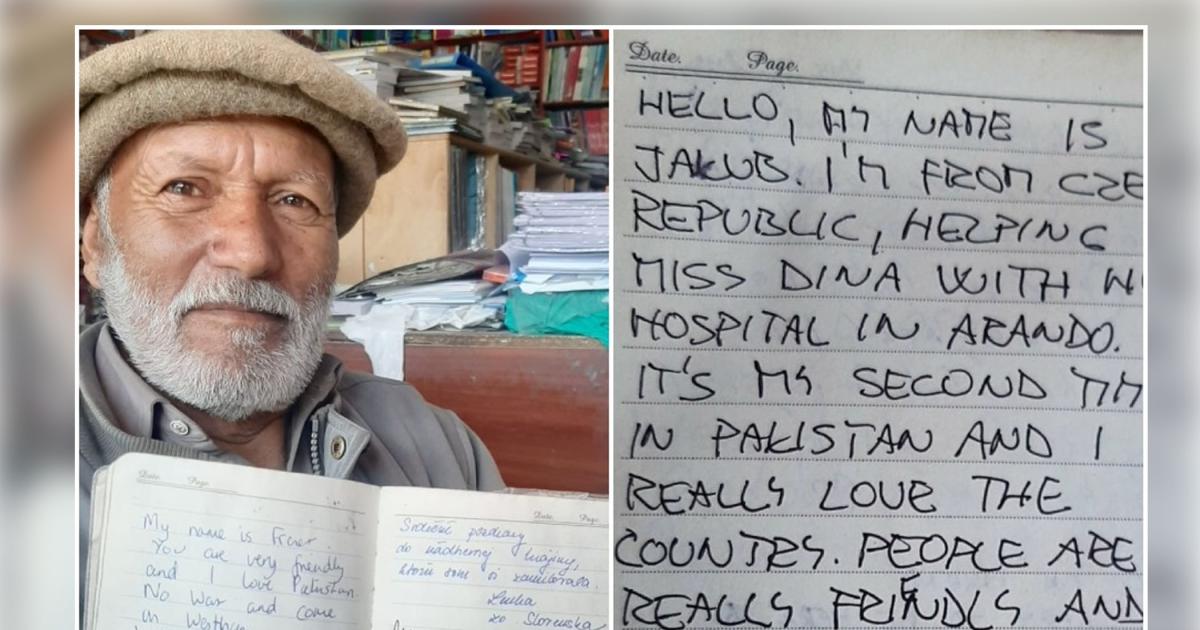 Date. Page.
My name is
You are very friendly
and I love Pakistan
No War and come
in
Date. Page.
Srdečné pozdravy
do nádhernej krajiny,
ktorú som si zamilovala.
Lenka
zo Slovenska
Date. Page.
HELLO, MY NAME IS
JAKUB. I'M FROM CZE
REPUBLIC, HELPING
MISS DINA WITH H
HOSPITAL IN ARANDO.
IT'S MY SECOND TIM
IN PAKISTAN AND I
REALLY LOVE THE
COUNTRY. PEOPLE ARE
REALLY FRIENDLY AND